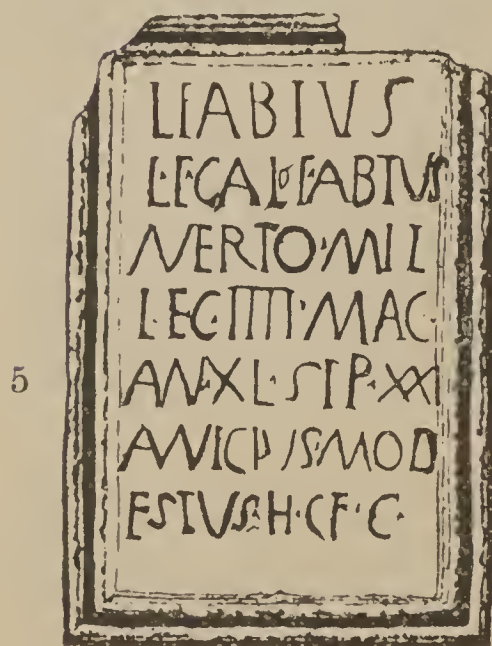 L FABIVS
L·F·GAL·FABIVS
NERTO·MIL
LEG·IIII·MAC·
AN·XL·STIP·XXI
AMICVS·MOD
ESTVS·H·C·F·C·
5